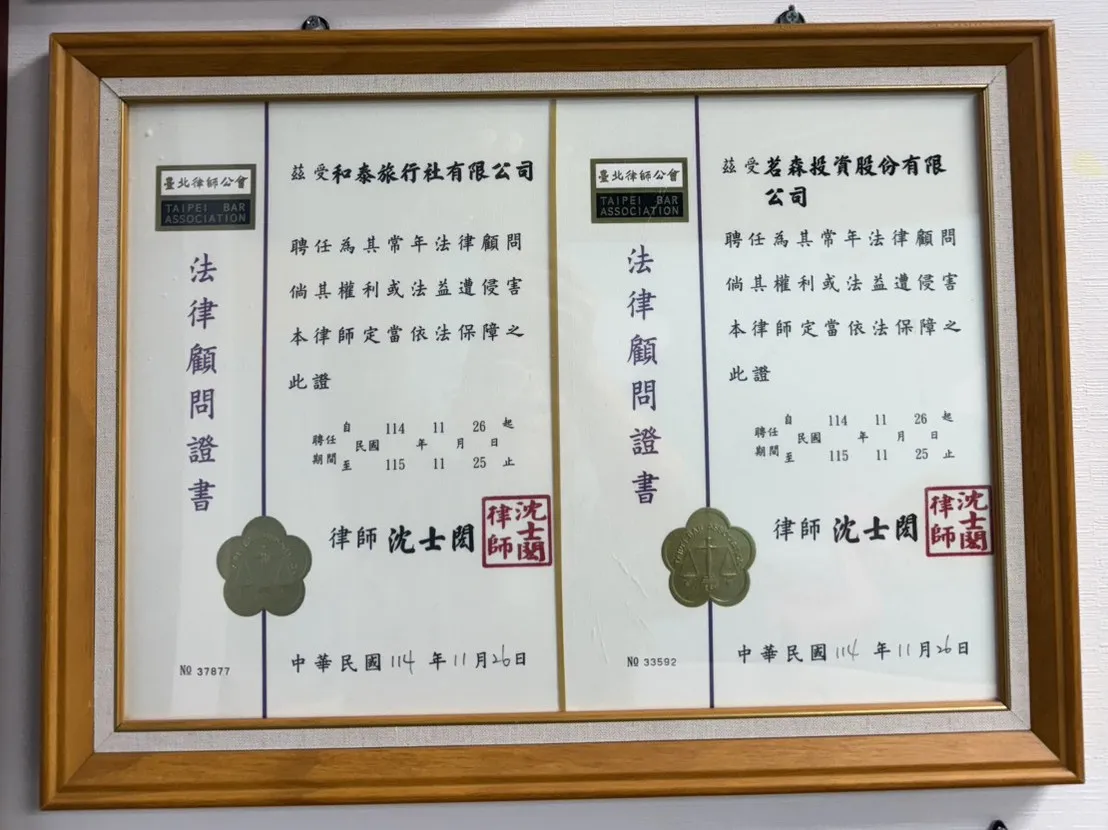 臺北律師公會
TAIPEI BAR
ASSOCIATION
法律顧問證書
茲受和泰旅行社有限公司
聘任為其常年法律顧問
倘其權利或法益遭侵害
本律師定當依法保障之
此證
聘任期間
自民國 114 年 11 月 26 日起
至 115 11 25 止
律師 沈士閎
沈士閎律師
中華民國114年11月26日
№ 37877
臺北律師公會
TAIPEI BAR
ASSOCIATION
法律顧問證書
茲受茗森投資股份有限
公司
聘任為其常年法律顧問
倘其權利或法益遭侵害
本律師定當依法保障之
此證
聘任期間
自民國 114 年 11 月 26 日起
至 115 11 25 止
律師 沈士閎
沈士閎律師
中華民國114年11月26日
№ 33592